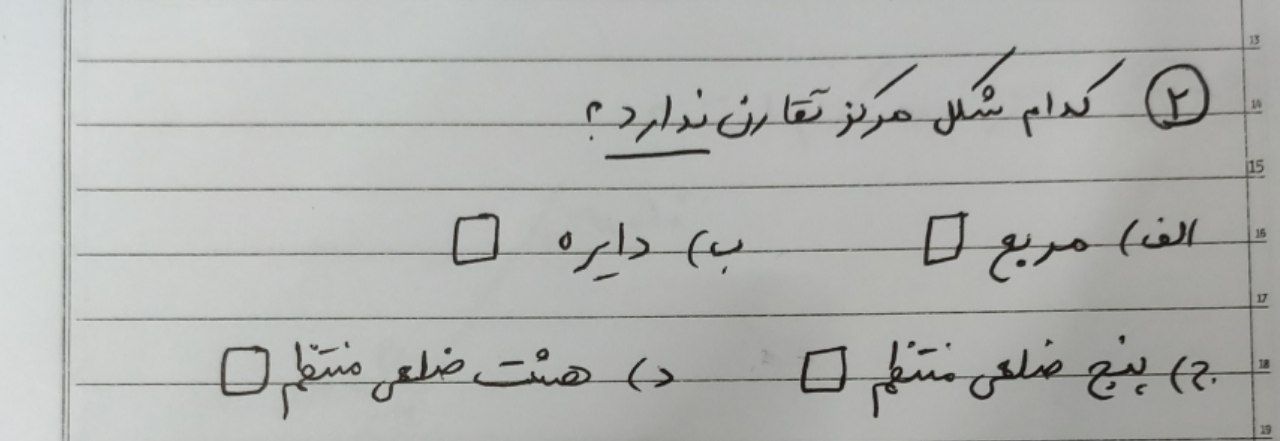 ۲ کدام شکل مرکز تقارن ندارد؟
الف) مربع □ ب) دایره □
ج) پنج ضلعی منتظم □ د) هشت ضلعی منتظم □
13
14
15
16
17
18
19